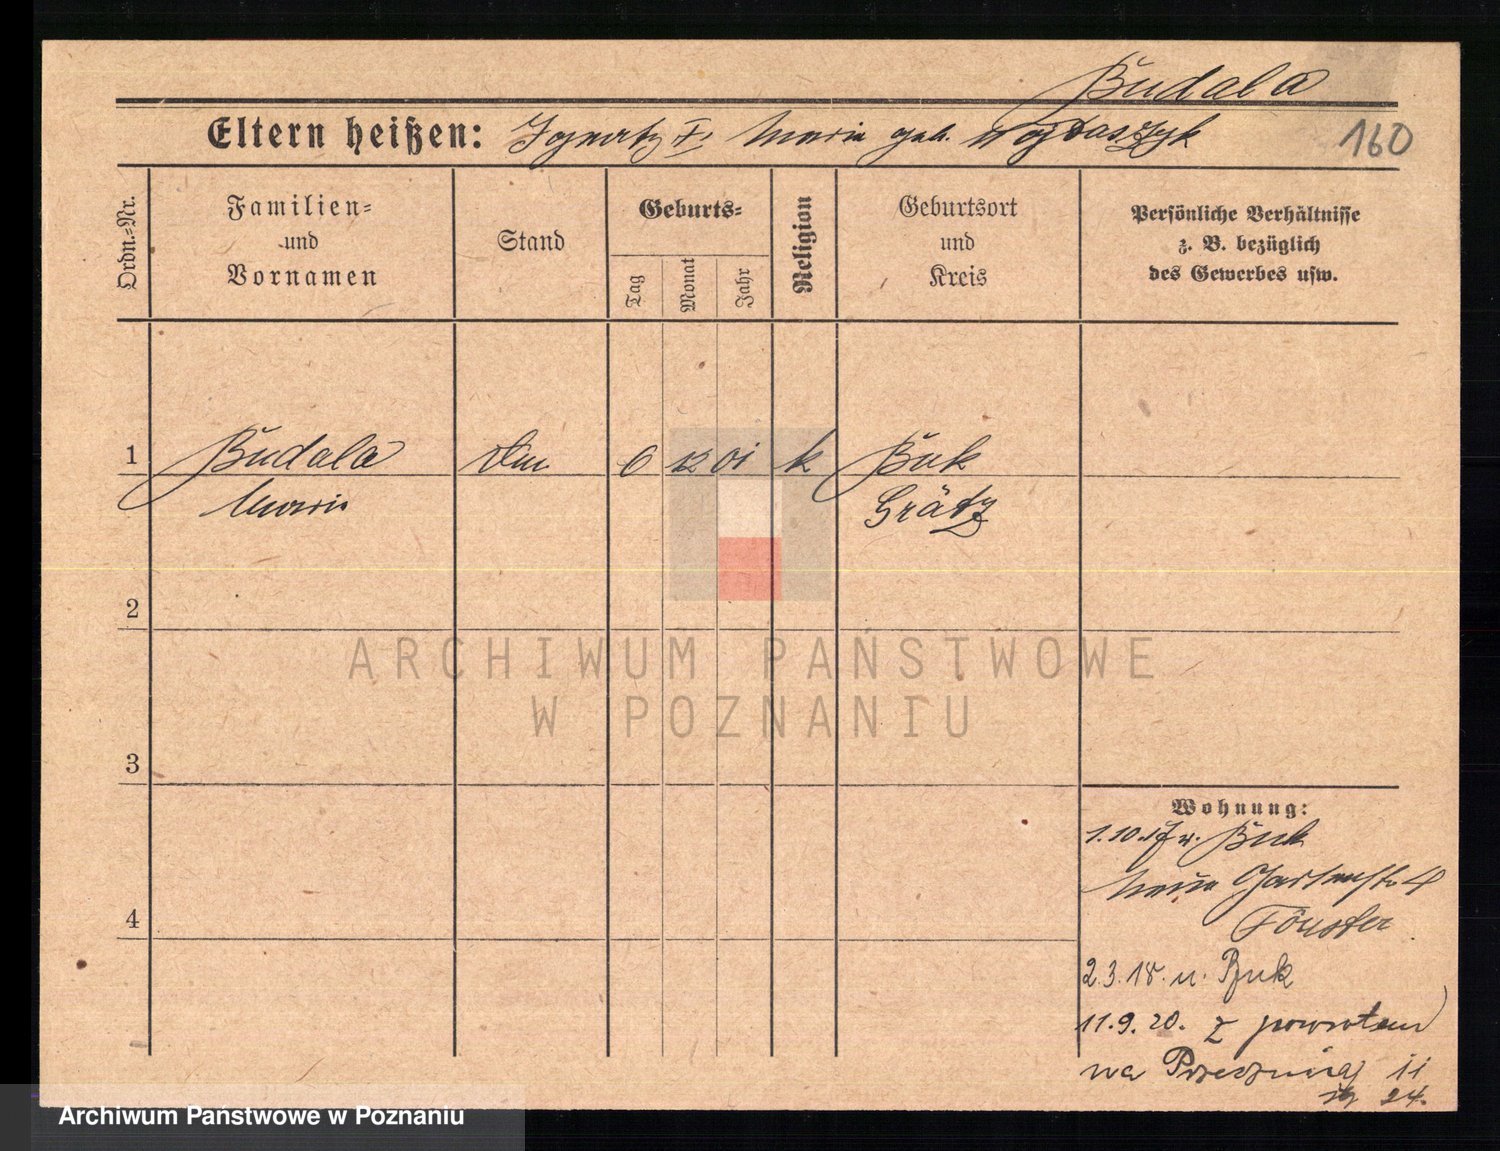 Budala
Eltern heißen: Ignatz F. Maria geb. Wojtaszyk
160
Ordn.-Nr.
Familien-
und
Vornamen
Stand
Geburts-
Tag
Monat
Jahr
Religion
Geburtsort
und
Kreis
Persönliche Verhältnisse
z. B. bezüglich
des Gewerbes usw.
1 Budala 6 12 01 k Buk
Maria Grätz
2
3
4
Wohnung:
1.10.17 v. Buk
Neue Gartenstr. 4
Förster
2.3.18. n. Buk
11.9.20. z powrotem
na Przecznicą 11
24.
ARCHIWUM PAŃSTWOWE
W POZNANIU
Archiwum Państwowe w Poznaniu